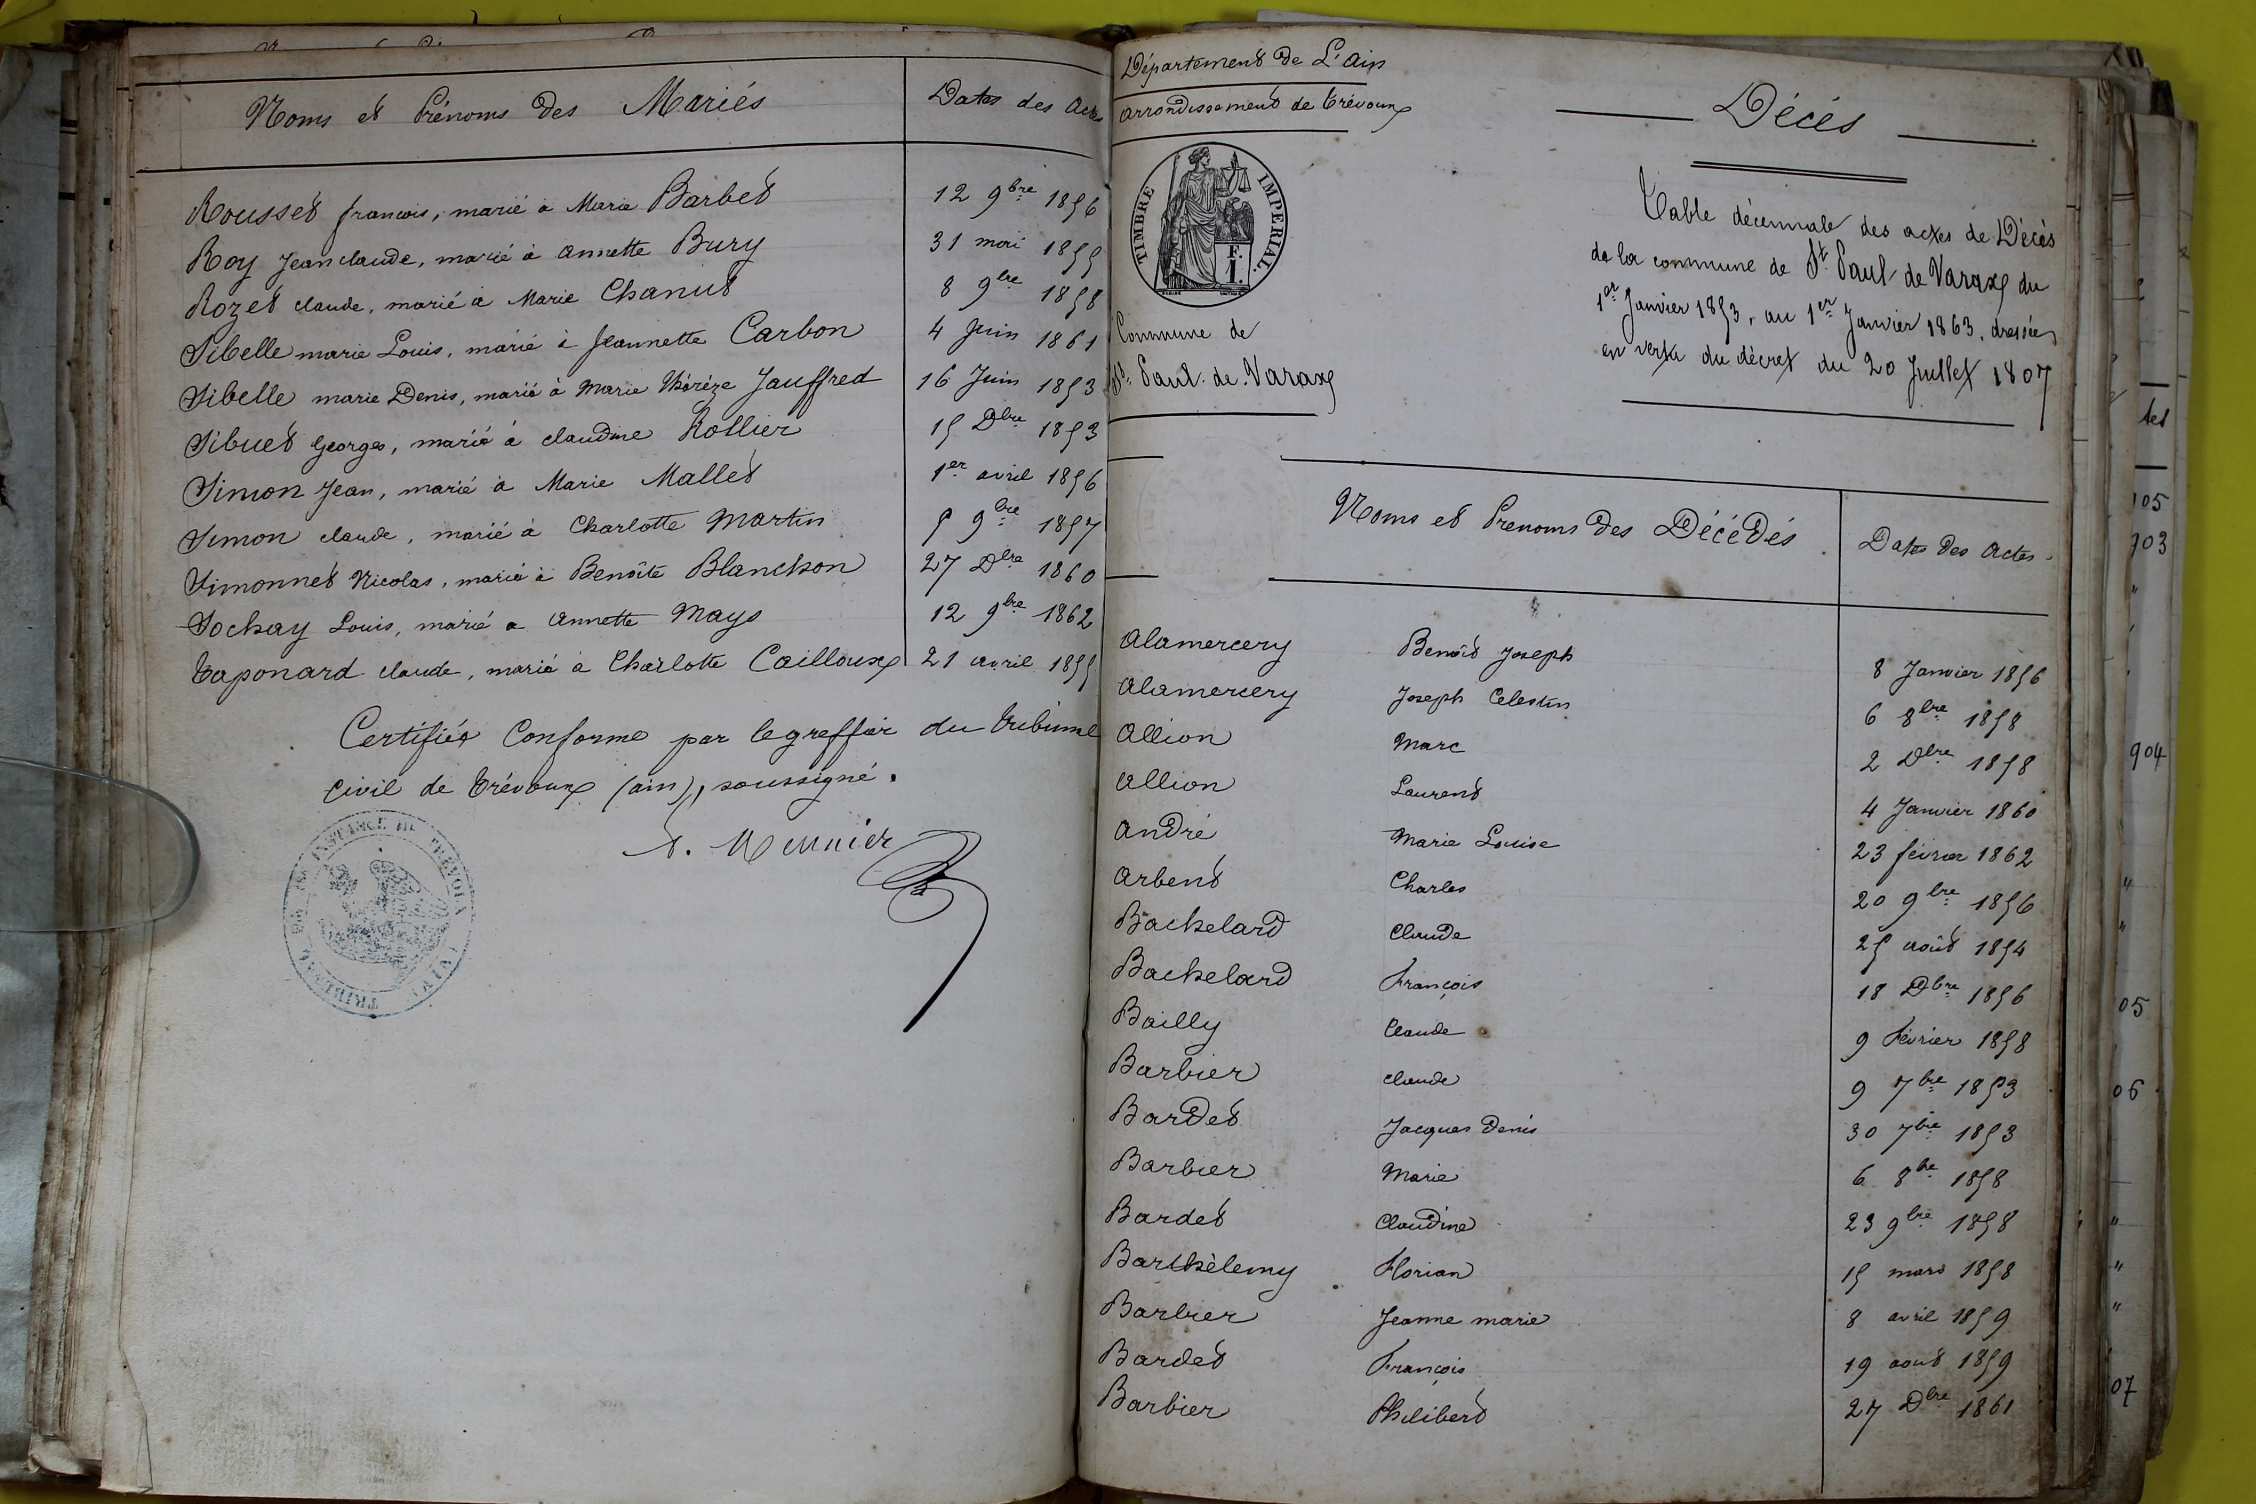 Noms et Prénoms des Mariés
Dates des Actes
Rousset françois, marié à Marie Barbet 12 9bre 1856
Roy Jean claude, marié à annette Bury 31 mai 1855
Rozet claude, marié à Marie Chanut 8 9bre 1858
Sibelle marie Louis, marié à Jeannette Carbon 4 Juin 1861
Sibelle marie Denis, marié à Marie Thérèze Jauffred 16 Juin 1853
Sibuet Georges, marié à claudine Rollier 15 Dbre 1853
Simon Jean, marié à Marie Mallet 1er avril 1856
Simon claude, marié à Charlotte Martin 5 9bre 1857
Simonnet Nicolas, marié à Benoîte Blanchon 27 Dbre 1860
Sochay Louis, marié a annette Mays 12 9bre 1862
Taponard claude, marié à Charlotte Cailloux 21 avril 1855
Certifiée Conforme par le greffier du tribunal
Civil de Trévoux (ain), soussigné.
Meunier
Département de L'Ain
Arrondissement de Trévoux
TIMBRE IMPERIAL.
F.
1.
Commune de
St. Paul de Varax
Décès
Table décennale des actes de Décès
de la commune de St. Paul de Varax du
1er Janvier 1853, au 1er Janvier 1863, dressée
en vertu du décret du 20 Juillet 1807
Noms et Prenoms des Décédés
Dates des Actes
Alamercery Benoit Joseph 8 Janvier 1856
Alamercery Joseph Celestin 6 8bre 1858
Allion Marc 2 Dbre 1858
Allion Laurent 4 Janvier 1860
André Marie Louise 23 février 1862
Arbent Charles 20 9bre 1856
Bachelard Claude 25 août 1854
Bachelard François 18 Dbre 1856
Bailly Claude 9 Février 1858
Barbier claude 9 7bre 1853
Bardet Jacques Denis 30 7bre 1853
Barbier Marie 6 8bre 1858
Bardet Claudine 23 9bre 1858
Barthèlemy Florian 15 mars 1858
Barbier Jeanne marie 8 avril 1859
Bardet François 19 aout 1859
Barbier Philibert 27 Dbre 1861
105
903
904
05
06
07